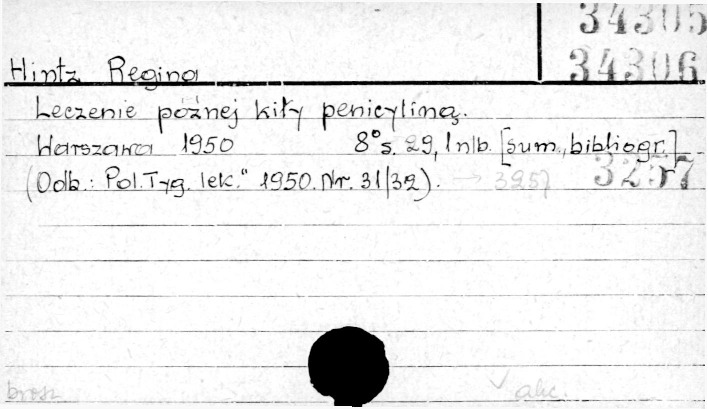 34305
34306
Hintz Regina
Leczenie późnej kiły penicyliną.
Warszawa 1950 8° s. 29, 1 nlb. [sum., bibliogr.]
(Odb.: Pol. Tyg. lek." 1950. Nr. 31/32). → 3257
3257
brosz
√ alic.